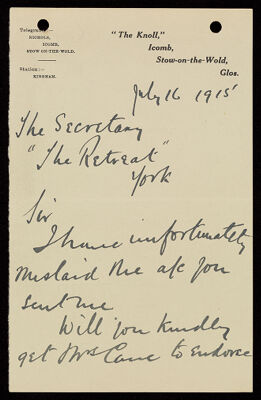 Telegrams:—
NICHOLS,
ICOMB,
STOW-ON-THE-WOLD.
Station:—
KINGHAM.
"The Knoll,"
Icomb,
Stow-on-the-Wold,
Glos.
July 16 1915
The Secretary
"The Retreat"
York
Sir
I have unfortunately
mislaid the a/c you
sent me
Will you kindly
get Mrs Cane to endorse